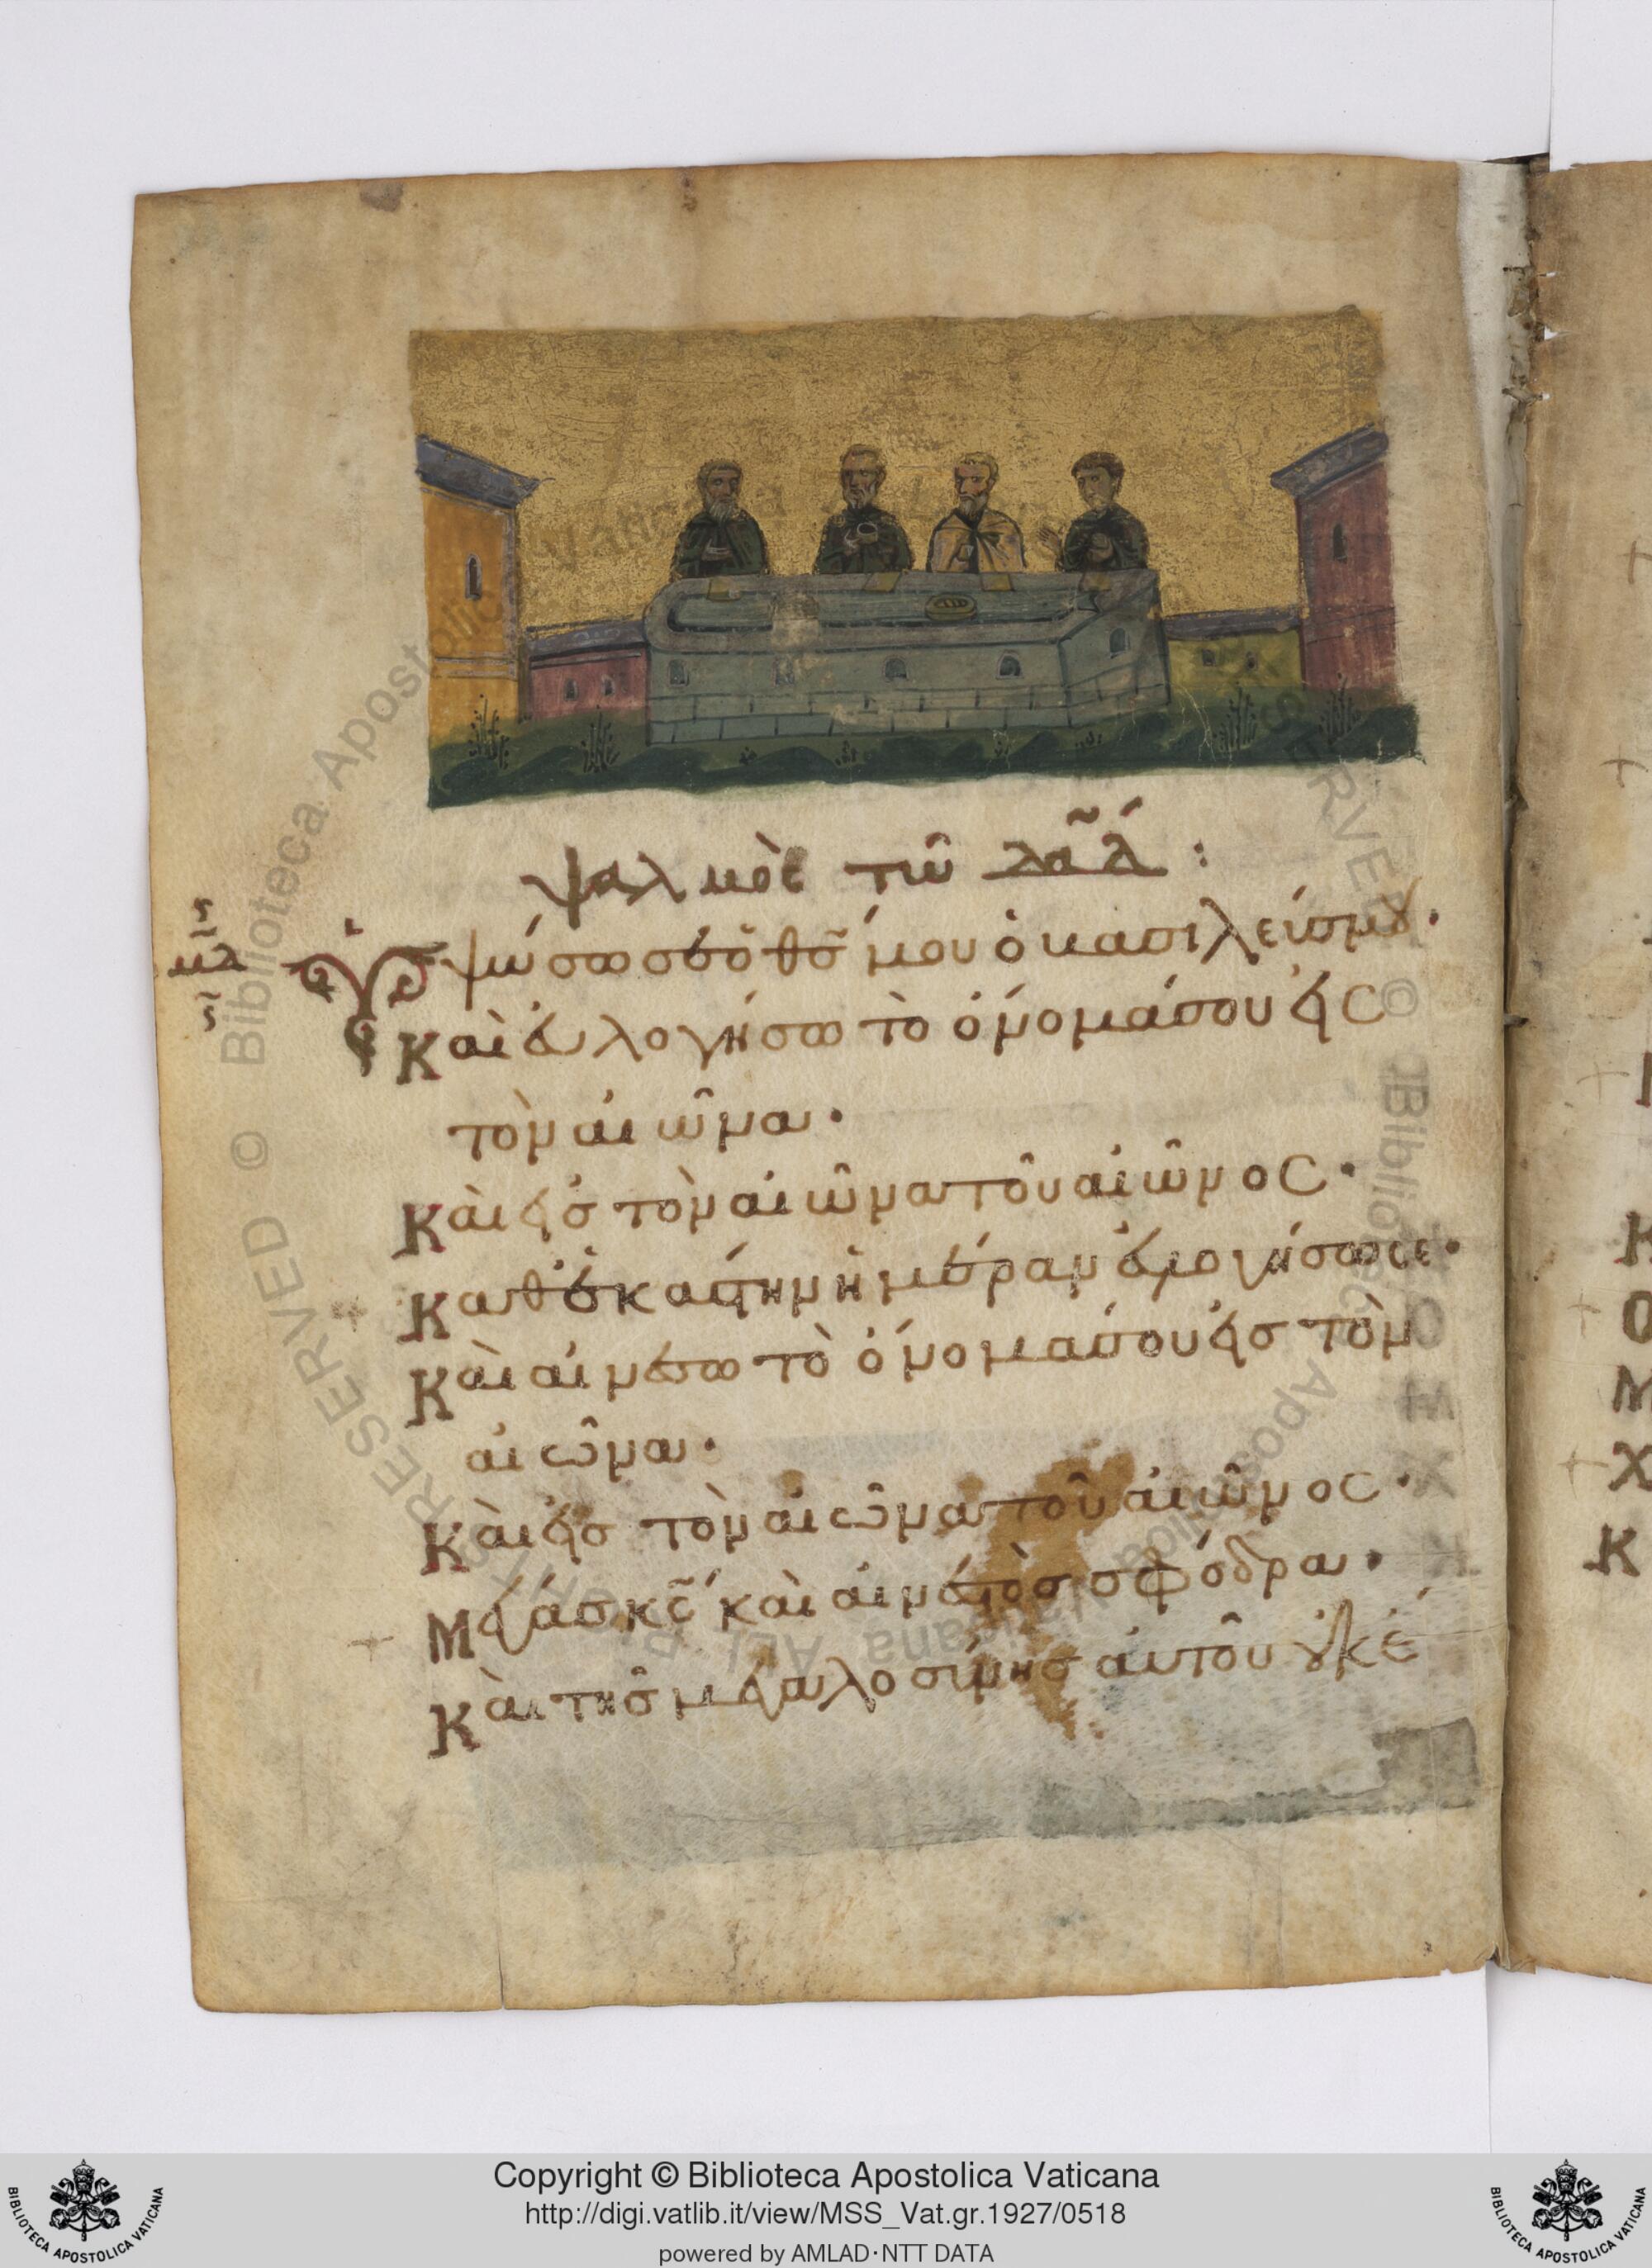 ψαλμὸς τῶ δᾱδ́ :
ρμδ
Ὑψώσω σὲ ὁ θς̅ μου ὁ βασιλεύσ μου·
Καὶ εὐλογήσω τὸ ὄνομά σου εἰς
τὸν αἰῶνα·
Καὶ εἰς τὸν αἰῶνα τοῦ αἰῶνος·
Καθ ἑκάστην ἡμέραν εὐλογήσω σε·
Καὶ αἰνέσω τὸ ὄνομά σου εἰς τὸν
αἰῶνα·
Καὶ εἰς τὸν αἰῶνα τοῦ αἰῶνος·
Μέγας κς̅ καὶ αἰνετὸς σφόδρα·
Καὶ τῆς μεγαλοσύνης αὐτοῦ οὐκ ἔ
Copyright © Biblioteca Apostolica Vaticana
http://digi.vatlib.it/view/MSS_Vat.gr.1927/0518
powered by AMLAD·NTT DATA
BIBLIOTECA APOSTOLICA VATICANA
BIBLIOTECA APOSTOLICA VATICANA